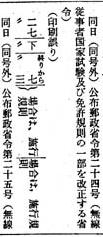 同日（同号外）公布郵政省令第二十四号（無線
従事者国家試験及び免許規則の一部を改正する省
令）
（印刷誤り）
二七 下 終りから 七 場合は、 施行規則
〃 〃 〃 三 場合は、 施行規則
同日（同号外）公布郵政省令第二十五号（無線